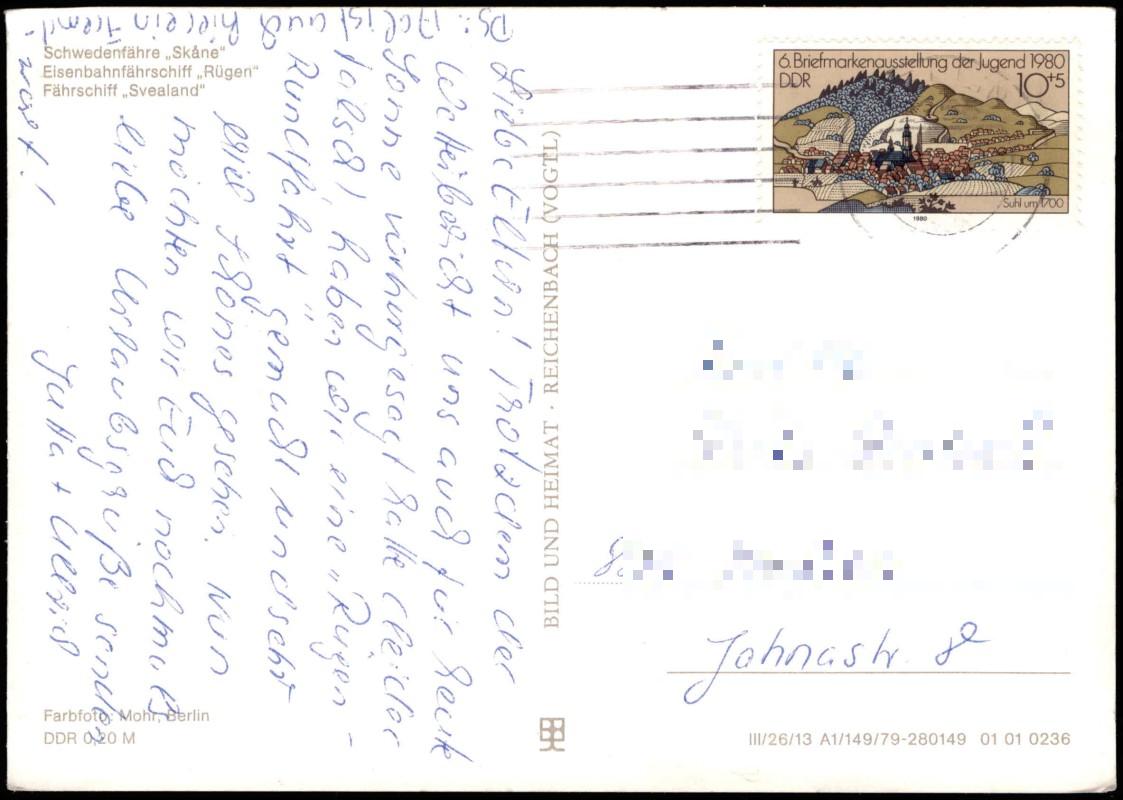 Schwedenfähre „Skåne“
Eisenbahnfährschiff „Rügen“
Fährschiff „Svealand“
Liebe Eltern! Trotzdem der
Wetterbericht uns auch für heute
Sonne vorhergesagt hatte (leider
falsch), haben wir eine „Rügen-
Rundfahrt“ gemacht und sehr
viel schönes gesehen. Nun
möchten wir Euch nochmals
liebe Urlaubsgrüße senden
Jutta + Ullrich
PS: ist auch hier ein Fremd-
wort!
Farbfoto: Mohr, Berlin
DDR 0,20 M
BILD UND HEIMAT · REICHENBACH (VOGTL)
6. Briefmarkenausstellung der Jugend 1980
DDR
10+5
Suhl um 1700
1980
Jahnastr. 8
III/26/13 A1/149/79-280149 01 01 0236